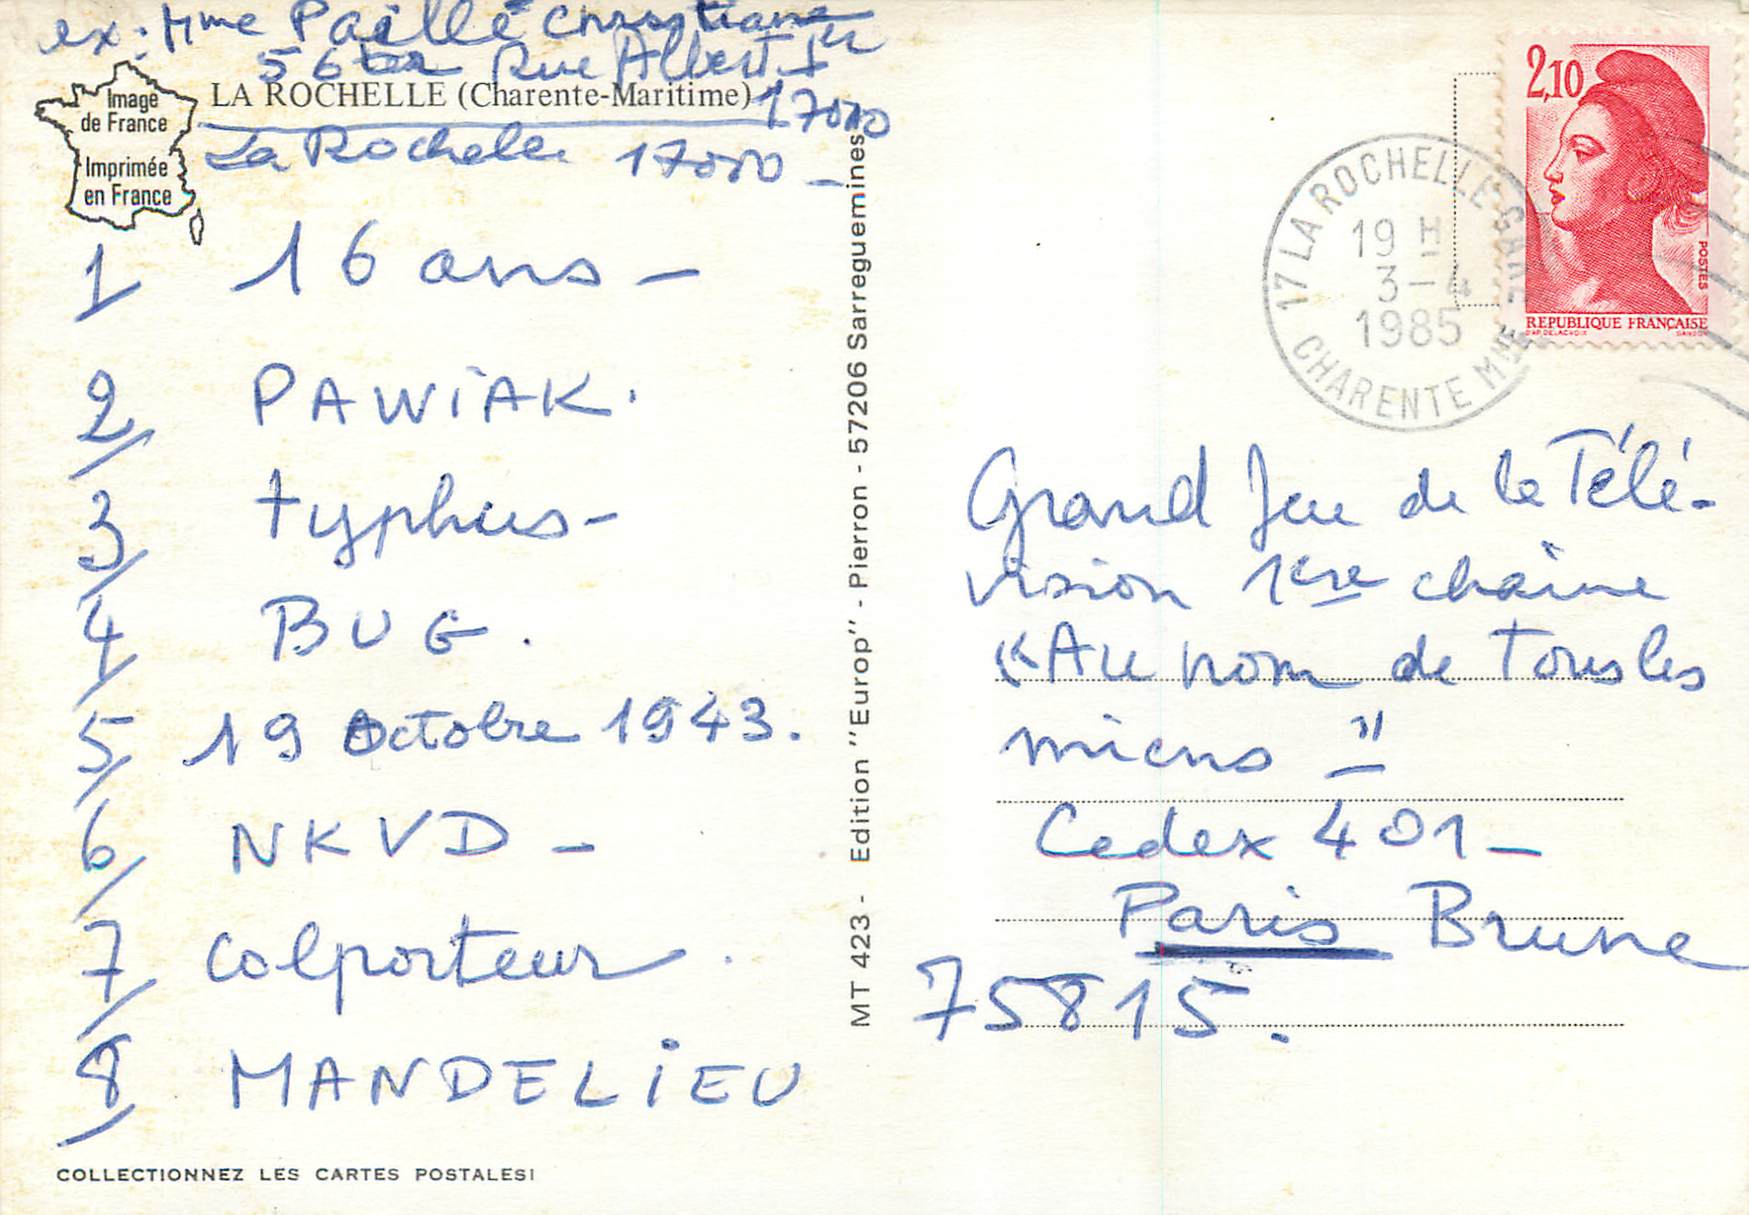 ex: Mme Paillé Christiane
56 ter Rue Albert 1er
LA ROCHELLE (Charente-Maritime) 17000
La Rochelle 17000 -
Image
de France
Imprimée
en France
1/ 16 ans -
2/ PAWIAK.
3/ typhus -
4/ BUG.
5/ 19 Octobre 1943.
6/ NKVD -
7/ colporteur.
8/ MANDELIEU
COLLECTIONNEZ LES CARTES POSTALES!
MT 423 - Edition "Europ" - Pierron - 57206 Sarreguemines
17 LA ROCHELLE GARE
19 H
3-4
1985
CHARENTE MME
2,10
POSTES
REPUBLIQUE FRANÇAISE
D'AP. DELACROIX GANDON
Grand Jeu de la Télé-
vision 1ère chaîne
"Au nom de Tous les
miens"
Cedex 401 -
Paris Brune
75815.